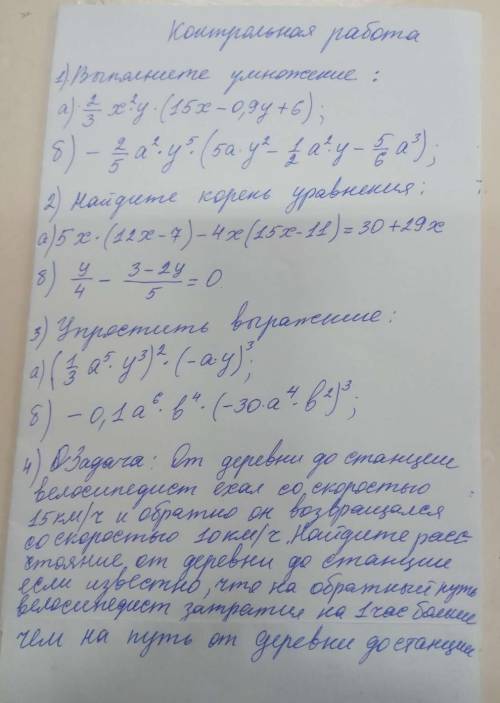 Контрольная работа
1) Выполните умножение:
а) 2/3 x²y · (15x - 0,9y + 6);
б) - 2/5 a² · y⁵ · (5a · y² - 1/2 a² · y - 5/6 a³);
2) Найдите корень уравнения:
а) 5x · (12x - 7) - 4x (15x - 11) = 30 + 29x
в) y/4 - (3 - 2y)/5 = 0
3) Упростить выражение:
а) (1/3 a⁵ · y³)² · (-a · y)³;
б) - 0,1a⁶ · b⁴ · (-30 · a⁴ · b²)³;
4) Задача: От деревни до станции
велосипедист ехал со скоростью
15 км/ч и обратно он возвращался
со скоростью 10 км/ч. Найдите расс-
тояние, от деревни до станции
если известно, что на обратный путь
велосипедист затратил на 1 час больше
чем на путь от деревни до станции